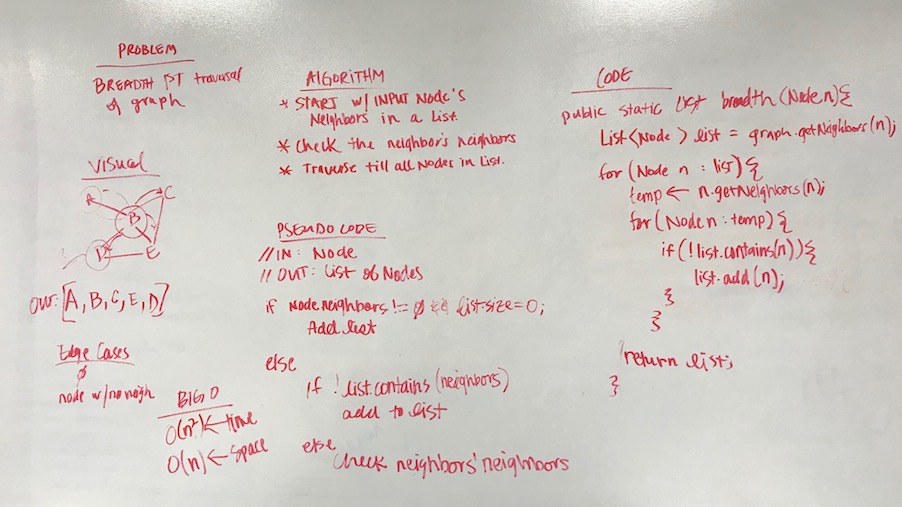 PROBLEM
BREADTH 1ST traversal
of graph
VISUAL
A
C
B
D
E
OUT: [A, B, C, E, D]
Edge Cases
∅
node w/ no neigh
BIG O
O(n²) ← time
O(n) ← space
ALGORITHM
* START w/ INPUT Node's
Neighbors in a List.
* Check the neighbor's neighbors
* Traverse till all Nodes in List.
PSEUDO CODE
// IN: Node
// OUT: List of Nodes
if Node.neighbors != ∅ && list.size = 0;
Add list
else
if ! list.contains (neighbors)
add to list
else
Check neighbors' neighbors
CODE
public static List breadth (Node n) {
List<Node> list = graph.getNeighbors(n);
for (Node n : list) {
temp ← n.getNeighbors(n);
for (Node n : temp) {
if (! list.contains(n)) {
list.add (n);
}
}
return list;
}